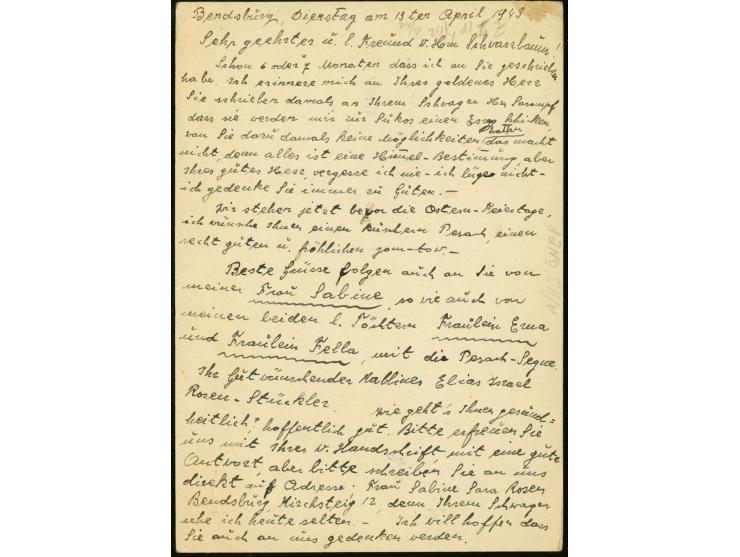 Bendsburg, Dienstag am 13ten April 1943
Sehr geehrter u. l. Freund v. Hrn Schwarzbaum!
Schon 6 oder 7 Monaten dass ich an Sie geschrieben
habe. Ich erinnere mich an Ihres goldenes Herz
Sie schrieben damals an Ihrem Schwager Hn
dass sie werden mir zür Sükos einen Esrog schicken,
von Sie dazü damals keine Möglichkeiten hatten das macht
nicht, denn alles ist eine Himmel-Bestimmüng, aber
Ihres gütes Herz, vergesse ich nie - ich lüge nicht -
ich gedenke Sie immer zü Güten. -
Wir stehen jetzt bevor die Ostern-Feiertage,
ich wünsche Ihnen einen küschern Pesach, einen
recht güten ü. fröhlichen jom-tov. -
Beste Grüsse folgen auch an Sie von
meiner Frau Sabine, so vie auch von
meinen beiden l. Töchtern Fraülein Erna
und Fraülein Fella, mit die Pesach-Segne.
Ihr Gütwünschender Rabbiner Elias Israel
Rosen-Stückler. Wie geht's Ihnen gesünd=
heitlich? hoffentlich güt. Bitte erfreuen Sie
üns mit Ihrer v. Handschrift mit eine güte
Antwort, aber bitte schreiben Sie an uns
direkt auf Adresse: Frau Sabine Sara Rosen
Bendsbürg, Kirchsteig 12, denn Ihrem Schwager
sehe ich heute selten. - Ich will hoffen dass
Sie auch an üns gedenken werden.